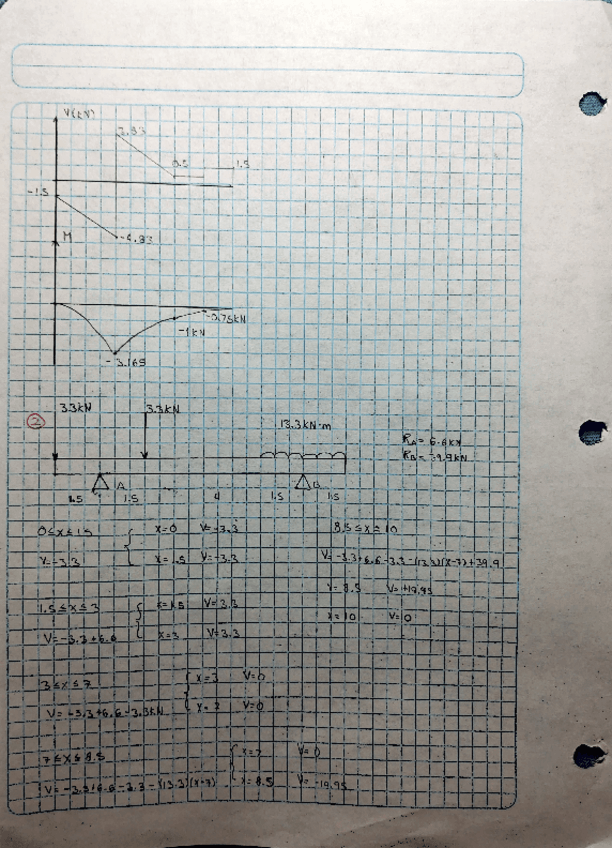 V(kN)
7.83
0.5
1.5
-1.5
-4.83
M
-0.75kN
-1kN
-3.165
2
3.3kN
3.3kN
13.3kN·m
RA= 6.6kN
RB= 39.9kN
A
B
1.5
1.5
4
1.5
1.5
0≤x≤1.5
x=0 V=-3.3
V=-3.3
x=1.5 V=-3.3
8.5≤x≤10
V=-3.3+6.6-3.3-(13.3)(x-7)+39.9
x=8.5 V=+19.95
x=10 V=0
1.5≤x≤3
x=1.5 V=3.3
V=-3.3+6.6
x=3 V=3.3
3≤x≤7
x=3 V=0
V=-3.3+6.6-3.3kN
x=7 V=0
7≤x≤8.5
x=7 V=0
V=-3.3+6.6-3.3-(13.3)(x-7)
x=8.5 V=-19.95